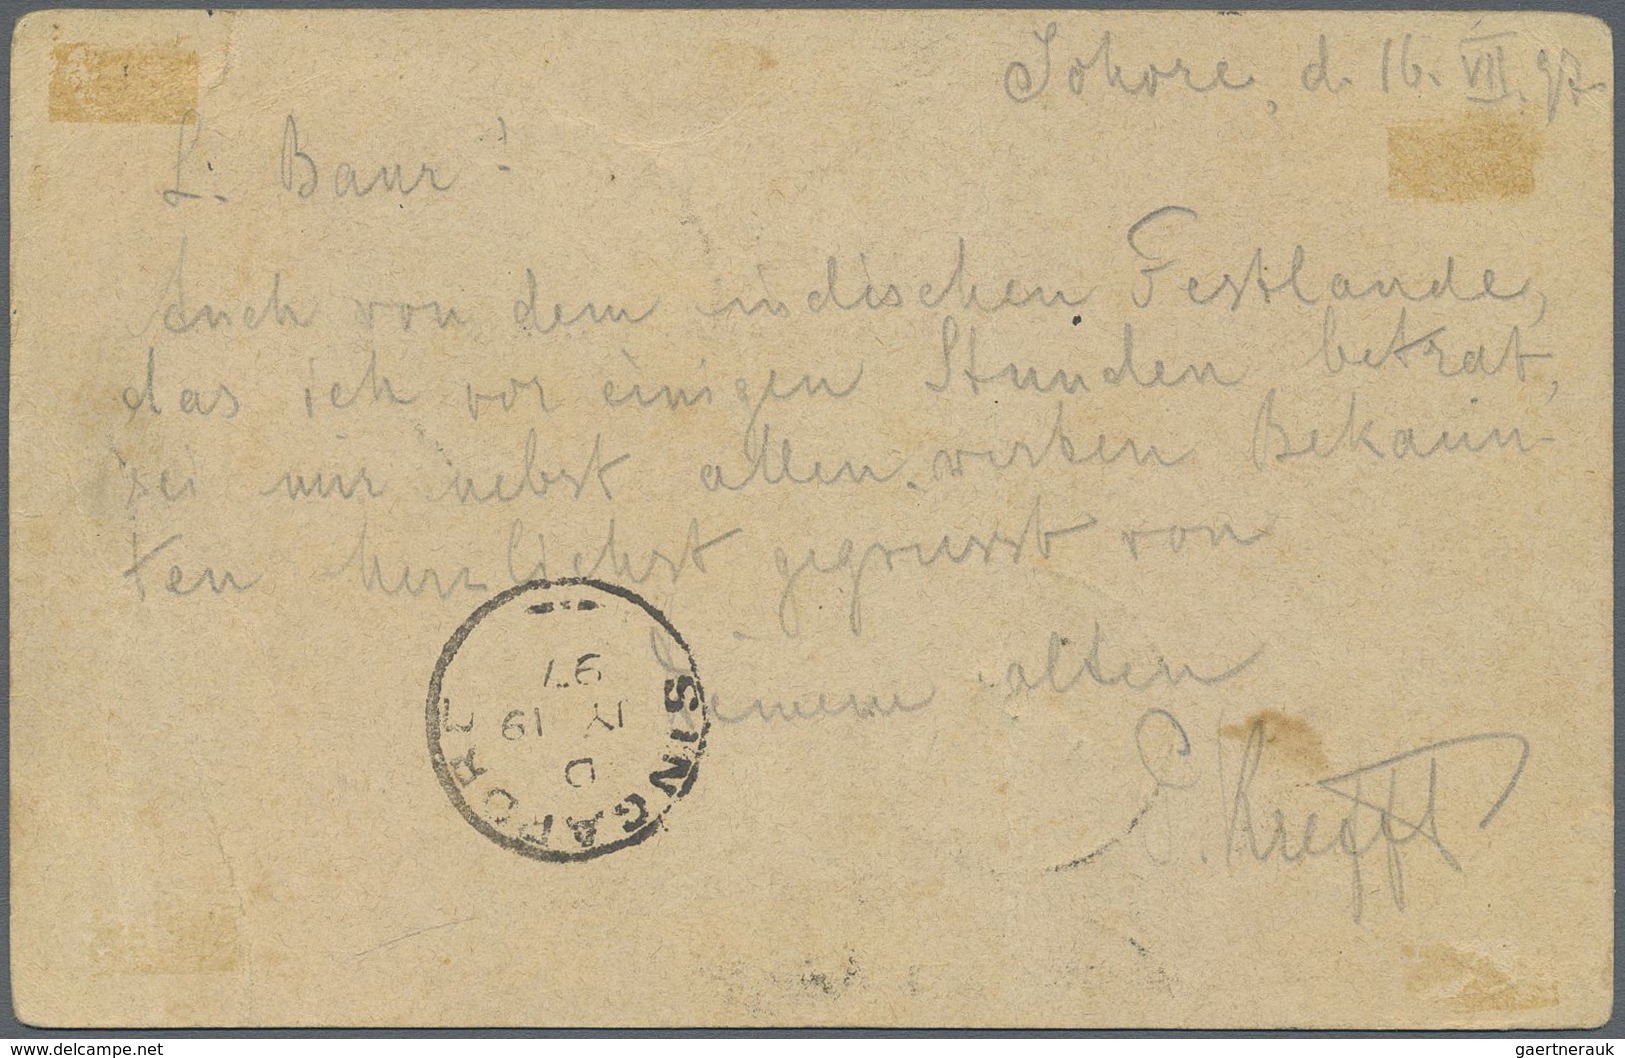 Johore, d. 16. VII. 97.
L. Baur!
Auch von dem indischen Festlande,
das ich vor einigen Stunden betrat,
sei mir nebst allen werten Bekann-
ten herzlichst gegrüsst von
Deinem alten
P. Krefft
SINGAPORE
D
JY 19
97
delcampe.net
gaertnerauk